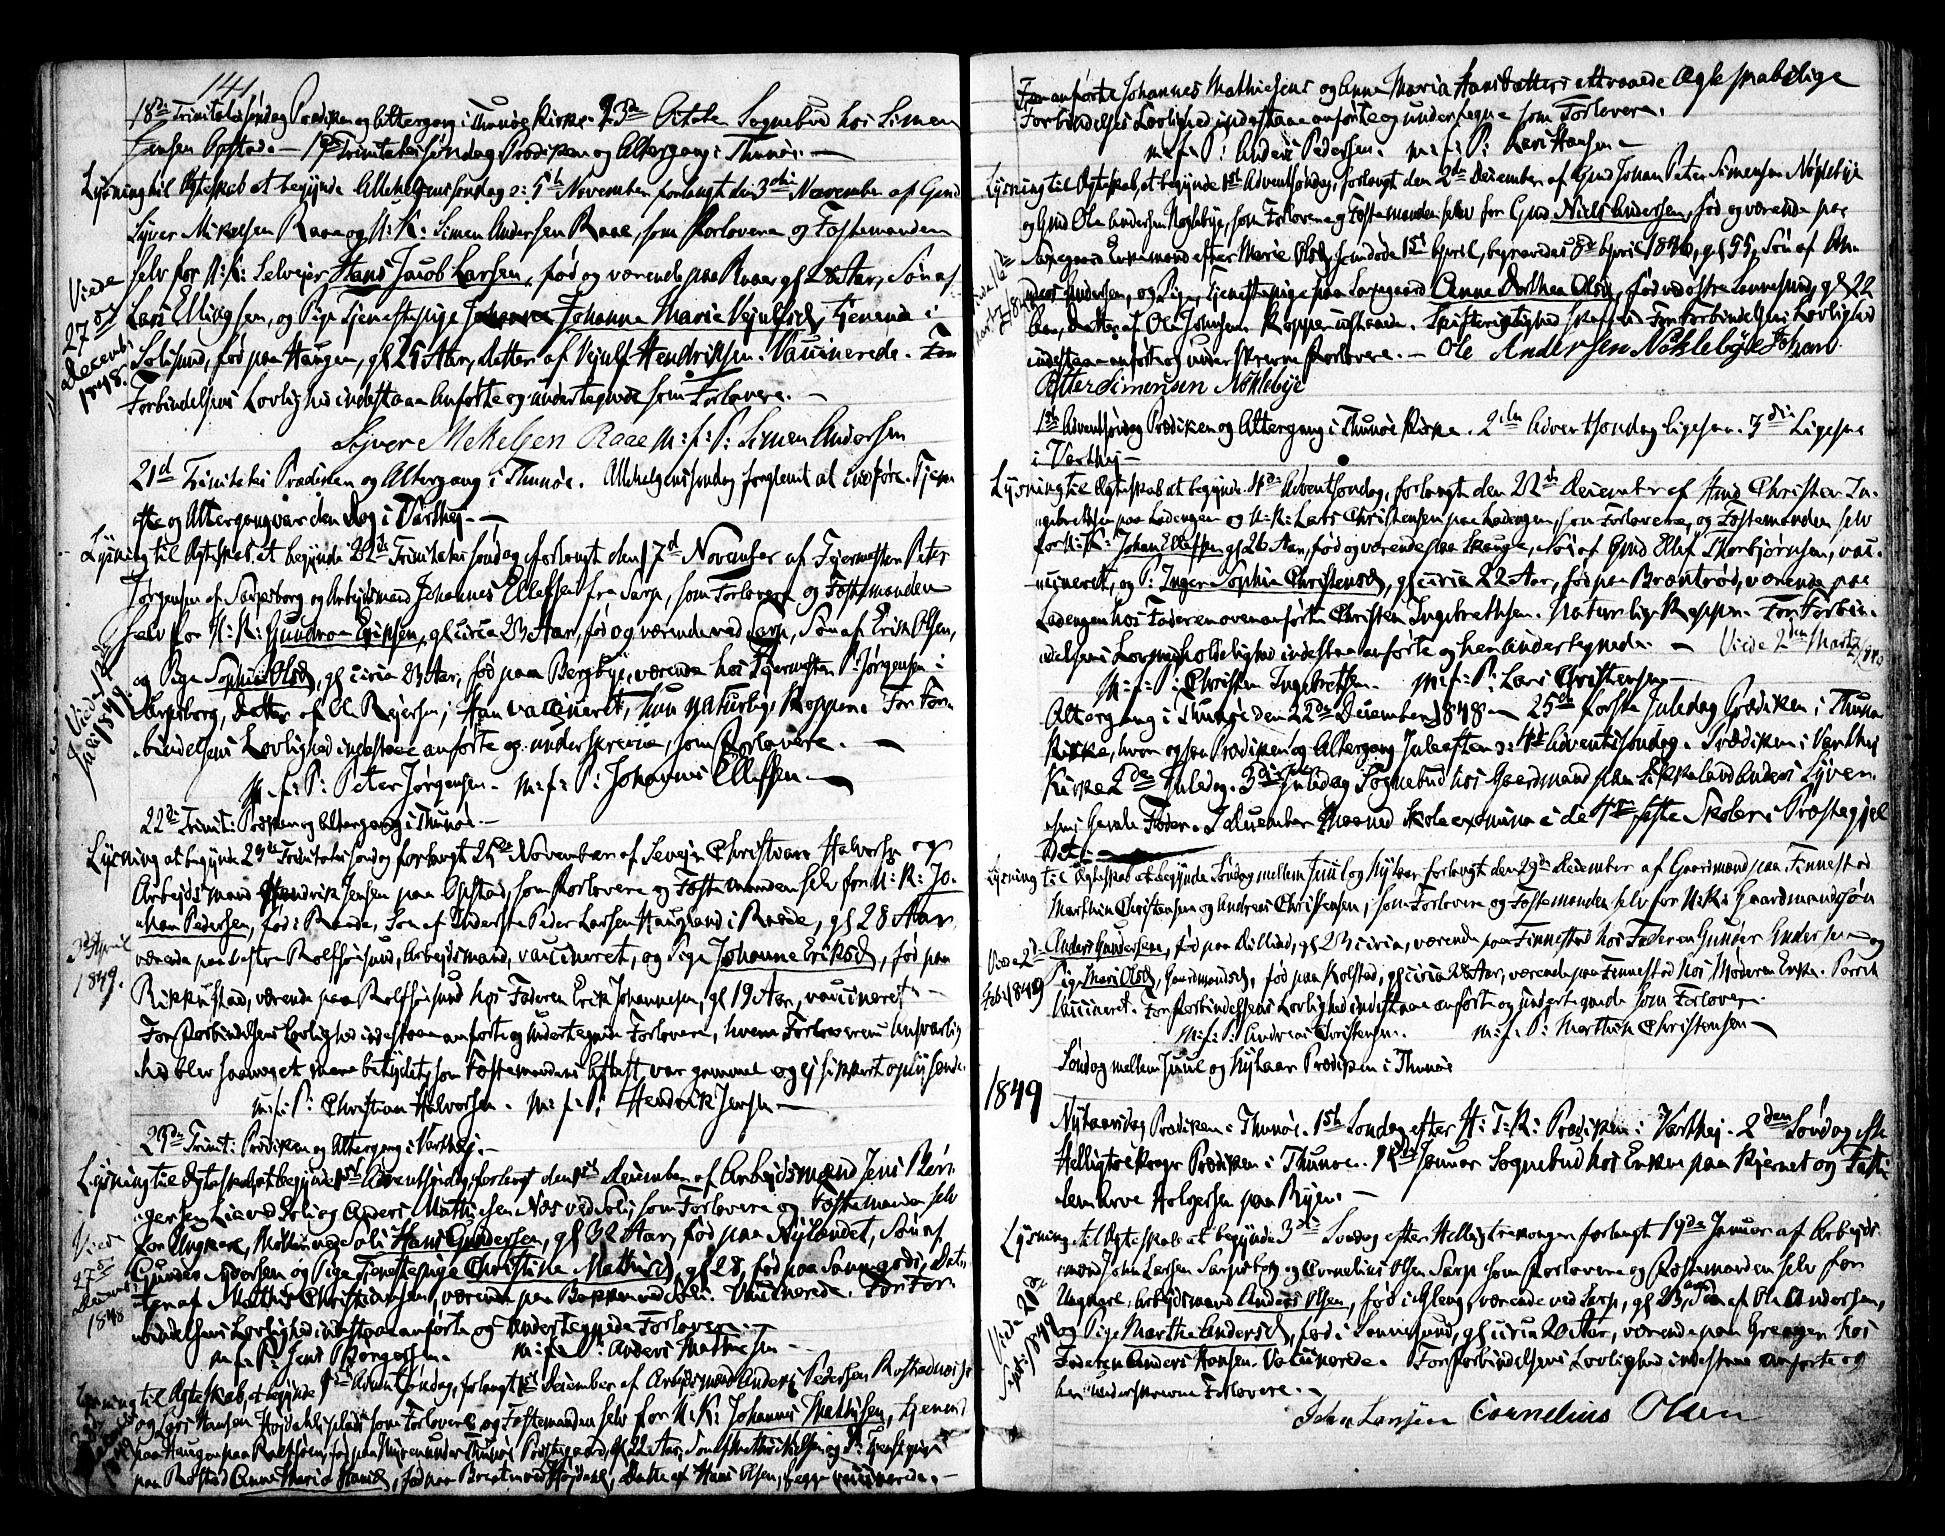 141
18de Trinitatis søndag Prædiken og Altergang i Thunøe Kirke. 23de Octob. Sognebud hos Simen
Jensen Opstad. — 19de Trinitatis søndag Prædiken og Altergang i Thunøe. —
Lysning til Ægteskab at begynde Allehelgens søndag 5te November forlangt den 3die November af Gmd
Syver Mikelsen Raae og U: K: Simen Andersen Raae, som Forlovere og Fæstemanden
selv for U: K: Selvejer Hans Jacob Larsen, fød og værende paa Raae, gl 28 Aar, Søn af
Viede
27de
December
1848.
Lars Ellingsen, og Pige Tjenestepige Johanne Marie Vejulfsd, tjenende i
Solisund, fød paa Haugen, gl 25 Aar, datter af Vejulf Hendriksen. Vaccinerede. For
Forbindelsens Lovlighed indestaae anførte og undertegnede som Forlovere. —
Syver Mekelsen Raae M: f: P: Simen Andersen
21d Trinitatis Prædiken og Altergang i Thunøe. Allehelgenssøndag forglemt at indføre. Tjene-
ste og Altergang var den Dag i Varthej. —
Lysning til Ægteskab at begynde 22de Trinitatis søndag forlangt den 17d November af Fyermester Peter
Jørgensen af Sarpsborg og Arbejdsmand Johannes Ellefsen fra Sarp, som Forlovere og Fæstemanden
selv for U: K: Gundron Eriksen, gl circa 23 Aar, fød og værende ved Sarp, Søn af Erik Olsen,
og Pige Sophie Olsd, gl circa 23 Aar, fød paa Bergbye, værende hos Fyermester P: Jørgensen i
Viede 12de
Juli 1849.
Sarpsborg, Datter af Ole Rejersen; Han vaccineret, hun naturlig Kopper. For For-
bindelsens Lovlighed indestaae anførte og underskrevne, som Forlovere. —
M: f: P: Peter Jørgensen. M: f: P: Johannes Ellefsen. —
22de Trinit: Prædiken og Altergang i Thunøe. —
Lysning at begynde 23de Trinitatis søndag forlangt 25de November af Selvejer Christian Halvorsen og
Arbejdsmand Hendrik Jensen paa Opstad, som Forlovere og Fæstemanden selv for U: K: Jo-
han Pedersen, fød i Raade, Søn af Inderste Peder Larsen Haugland i Raade, gl 28 Aar,
3d April
1849.
værende paa vestre Rolfsøisund, Arbejdsmand, vaccineret, og Pige Johanne Eriksd, fød paa
Rikkustad, værende paa Rolfsøisund hos Faderen Erik Johannesen, gl 19 Aar, vaccineret. —
For Forbindelsens Lovlighed indestaae anførte og undertegnede Forlovere, hvem Forloverens Ansvarlig-
hed blev saameget mere betydet, som Fæstemandens Attest var gammel og ej sikkert oplysende.
M: f: P: Christian Halvorsen. M: f: P: Hendrik Jensen —
23de Trinit: Prædiken og Altergang i Varthej. —
Lysning til Ægteskab at begynde 1ste Adventsøndag forlangt den 1ste December af Arbejdsmand Jens Bør-
gersen Lie ved Soli og Anders Mathiesen Næs ved Soli som Forlovere og Fæstemanden selv
Viede
27de
Decemb.
1848
for Ungkarl, Møllersvend Soli Hans Gundersen, gl 32 Aar, fød paa Nylandet, Søn af
Gunder Syversen og Pige Tjenestepige Christine Mathiesd, gl 28, fød paa Sannegodi, Dat-
ter af Mathis Christiansen, værende paa Bakken ved Soli. Vaccinerede. For For-
bindelsens Lovlighed indestaae anførte og undertegnede Forlovere. —
M: f: P: Jens Børgersen. M: f: P: Anders Mathiesen —
Lysning til Ægteskab, at begynde 1ste Adventsøndag, forlangt 1ste December af Arbejdsmand Anders Pedersen
og Lars Hansen som Forlovere og Fæstemanden selv for U: K: Johannes Mathisen, tjenende
paa Haugen paa Rolfsøen, fød paa Myren under Thunøe Præstegaard, gl 22 Aar, Søn af Mathis Nielsen og P: Tjenestepige
paa Rostad Anne Maria Hansd, fød paa Braten ved Højdahl, Datter af Hans Olsen, begge vaccinerede. —
Foranførte Johannes Mathiesens og Anne Maria Hansdatters attraaede Ægteskabelige
Forbindelses Lovlighed indestaae anførte og undertegne som Forlovere.
M: f: P: Anders Pedersen. M: f: P: Lars Hansen —
Lysning til Ægteskab, at begynde 1ste Adventsøndag, forlangt den 2den December af Gmd Johan Peter Simensen Nøklebye
og Gmd Ole Andersen Nøklebye, som Forlovere og Fæstemanden selv for Gmd Niels Andersen, fød og værende paa
Enkemand efter Marie Olsd, som døde 1ste April, begravedes 8de April 1846, gl 55, Søn af An-
ders Andersen, og Pige, Tjenestepige paa Anne Dorthea Olsd, fød ved østre Sannesund, gl 22
Aar, datter af Ole Johnsen. Kopper udstaaede. Skifterigtighed skaffes. For Forbindelsens Lovlighed
indestaae anførte og underskrevne Forlovere. — Ole Andersen Nøklebye Johan
Petter Simensen Nøklebye
1ste Adventsøndag Prædiken og Altergang i Thunøe Kirke. 2den Adventsøndag ligesaa. 3die Ligesaa
i Varthej —
Lysning til Ægteskab at begynde 4de Adventsøndag, forlangt den 22de December af Gmd Christen In-
gebrethsen paa Ladengen og U: K: Lars Christensen paa Ladengen, som Forlovere, og Fæstemanden selv
for U: K: Johan Ellefsen, gl 26 Aar, fød og værende paa Skauge, Søn af Gmd Ellef Thorbjørnsen, vac-
cineret, og P: Inger Sophia Christensd, gl circa 22 Aar, fød paa Brantrød, værende paa
Ladengen hos Faderen ovenanførte Christen Ingebrethsen. Naturlig Kopper. For Forbin-
delsens Lovmedholdelighed indestaae anførte og her undertegnede. — Viede 2den Marts 1849
M: f: P: Christen Ingebrethsen. M: f: P: Lars Christensen —
Altergang i Thunøe den 22de December 1848 — 25de første Juledag Prædiken i Thunøe
Kirke, hvor ogsaa Prædiken og Altergang Juleaften 4de Adventssøndag. Prædiken i Varthej
Kirke 2den Juledag. 3die Juledag Sognebud hos Gaardmand paa Anders Syver-
sens gamle Fader. I December Maaned Skoleexamina i de 4re faste Skoler i Præstegjel-
det. —
Lysning til Ægteskab at begynde Søndag mellem Juul og Nytaar forlangt den 29de December af Gaardmand paa Finnestad
Marthin Christensen og Andreas Christensen, som Forlovere og Fæstemanden selv for U: K: Gaardmandssøn
Viede 2de
Feb: 1849
Anders Gundersen, fød paa Lilland, gl 23 circa, værende paa Finnestad hos Faderen Gunder Andersen og
Pige Mari Olsd, Gaardmandsd, fød paa Kolstad, gl circa 28 Aar, værende paa Finnestad hos Moderen Enke.
Vaccineret. For Forbindelsens Lovlighed indestaae anførte og undertegnede som Forlovere.
M: f: P: Andreas Christensen. M: f: P: Marthin Christensen —
Søndag mellem Juul og Nytaar Prædiken i Thunøe
1849
Nytaarsdag Prædiken i Thunøe. 1ste Søndag efter H: T: K: Prædiken i Varthej. 2den Søndag efter
Helligtrekonger Prædiken i Thunøe. Januar Sognebud hos Enken paa Kjernet og Fatti-
glem Arve Holgersen paa Ryen. —
Lysning til Ægteskab at begynde 3die Søndag efter Helligtrekonger forlangt 19de Januar af Arbejds-
mand John Larsen Sarpsborg og Cornelius Olsen Sarp som Forlovere og Fæstemanden selv for
Viede 20de
Sept: 1849
Ungkarl, Arbejdsmand Anders Olsen, fød i Gleng, værende ved Sarp, gl 23, Søn af Ole Andersen,
og Pige Marthe Andersd, fød i Sannesund, gl circa 20 Aar, værende paa Greager hos
Faderen Anders Hansen. Vaccinerede. For Forbindelsens Lovlighed indestaae anførte og
her underskrevne Forlovere. —
John Larsen Cornelius Olsen